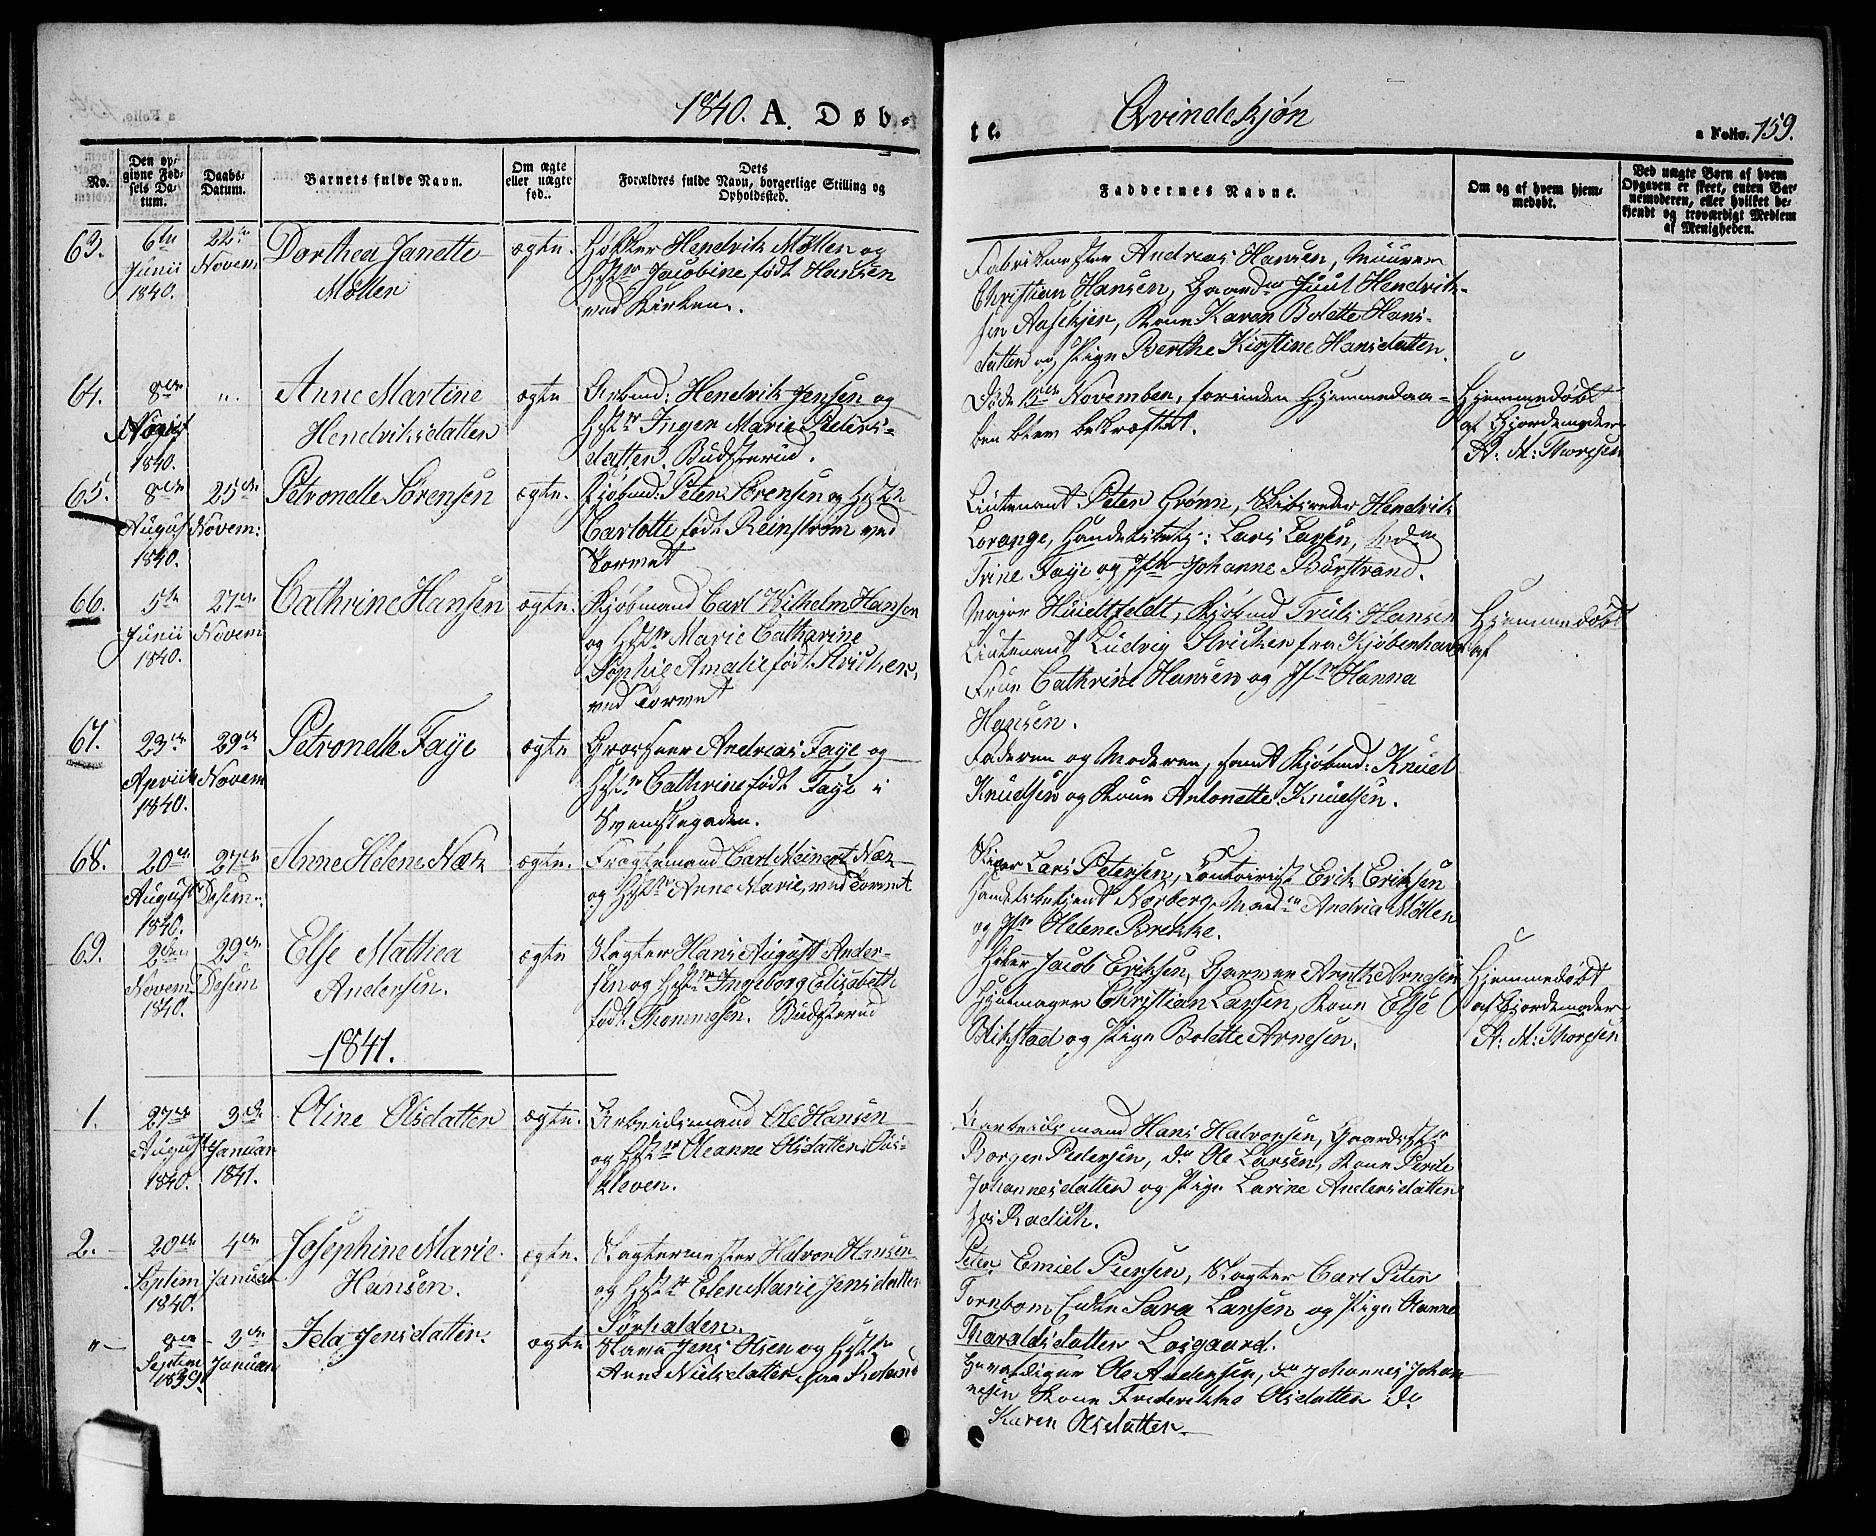 1840. A. Døb-
te. Qvindekjøn
a Folio. 159.
No.
Den op-
givne Fød-
sels Da-
tum.
Daabs-
Datum.
Barnets fulde Navn.
Om ægte
eller uægte
fød..
Dets
Forældres fulde Navn, borgerlige Stilling og
Opholdssted.
Faddernes Navne.
Om og af hvem hjem-
medøbt.
Ved uægte Børn af hvem
Opgaven er skeet, enten Bar-
nemoderen, eller hvilket be-
kjendt og troværdigt Medlem
af Menigheden.
63.
6te
Junii
1840.
22de
Novem
Dorthea Janette
Møllen
ægte.
Høkker Hendrik Møllen og
Hstr Jacobine født Hansen
ved Kirken.
Fabrikmester Andreas Hansen, Muurm
Christian Hansen, Gaardm Juul Hendrik-
sen Aaseskjen, Kone Karen Bolette Hans-
datter og Pige Berthe Kirstine Hansdatter.
64.
8de
1840.
"
Anne Martine
Hendriksdatter
ægte
Arbmd: Hendrik Jensen og
Hstr Inger Marie Peders-
datter. Budsterud.
Døde November, forinden Hjemmedaa-
ben blev bekræftet.
Hjemmedøbt
af Gjordemoder
A. M. Thoresen
65.
8de
August
1840.
25de
Novem:
Petronelle Sørensen
ægte.
Kjøbmd: Peter Sørensen og Hstr
Carlotte født Reinstrøm ved
Torvet
Lieutenant Peter Grønn, Skibsreder Hendrik
Lorange, Handelsbetj: Lars Larsen, Madm
Trine Faye og Jfr Johanne Børstrand.
66.
5te
Junii
1840.
27de
Novem
Cathrine Hansen
ægte.
Kjøbmand Carl Wilhelm Hansen
og Hstr Marie Catharine
Sophie Amalie født Stricker,
ved Torvet
Major Huitfeldt, Kjøbmd Truls Hansen
Lieutenant Ludvig Stricker fra Kjøbenhavn
Frue Cathrine Hansen og Jfr Hanna
Hansen.
Hjemmedøbt
af
67.
23de
April
1840.
29de
Novem
Petronelle Faye
ægte
Grosserer Andreas Faye og
Hstr Cathrine født Faye i
Svenskegaden.
Faderen og Moderen, samt Kjøbmd: Knud
Knudsen og Kone Antonette Knudsen.
68.
20de
August
1840.
27de
Desem:
Anne Helene Næs
ægte.
Fragtemand Carl Meinert Næs
og Hstr Anne Marie, ved Torvet
Skiper Lars Petersen, Contoirist Erik Eriksen
Handelsbetjent Norberg, Madm Andria Møllen
og Jfr Helene Brekke.
69.
2den
Novem
1840.
29de
Desem
Else Mathea
Andersen.
ægte
Slagter Hans August Ander-
sen og Hstr Ingeborg Elisabeth
født Thommesen. Budsterud
Jacob Eriksen, Garver Arnth Arnesen
Christian Larsen, Kone Else
Mikstad og Pige Bolette Arnesen.
Hjemmedøbt
af Gjordemoder
A. M. Thoresen
1841.
1.
27de
August
1840.
3de
Januar
1841.
Oline Olsdatter
ægte.
Arbeidsmand Ole Hansen
og Hstr Oleanne Olsdatter, Øsi-
kleven.
Aarbeidsmand Hans Halvorsen, Gaardsstr
Borger Pedersen, do Ole Larsen, Kone Perte
Johannesdatter og Pige Larine Andersdatter
hos Radich.
2.
20de
Septem
1840.
4de
Januar
Josephine Marie
Hansen.
ægte.
Slagtermester Halvor Hansen
og Hstr Ellen Marie Jensdatter
Sørhalden.
Peter Emiel Piersen, Slagter Carl Peter
Tornbom Enke Sara Larsen og Pige Hanne
Tharaldsdatter Losgaard.
"
8de
Septem
1839.
3de
Januar
Ida Jensdatter.
ægte
Slave Jens Olsen og Hstr
Ane Nielsdatter
Gevaldiger Ole Andersen, do Johannes Johan-
nesen Kone Frederikke Olsdatter do
Karen Olsdatter